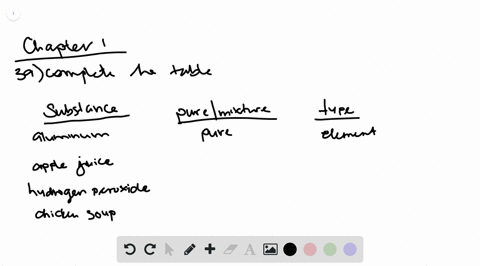 Chapter 1
39) complete the table
Substance pure/mixture type
aluminum pure element
apple juice
hydrogen peroxide
chicken soup